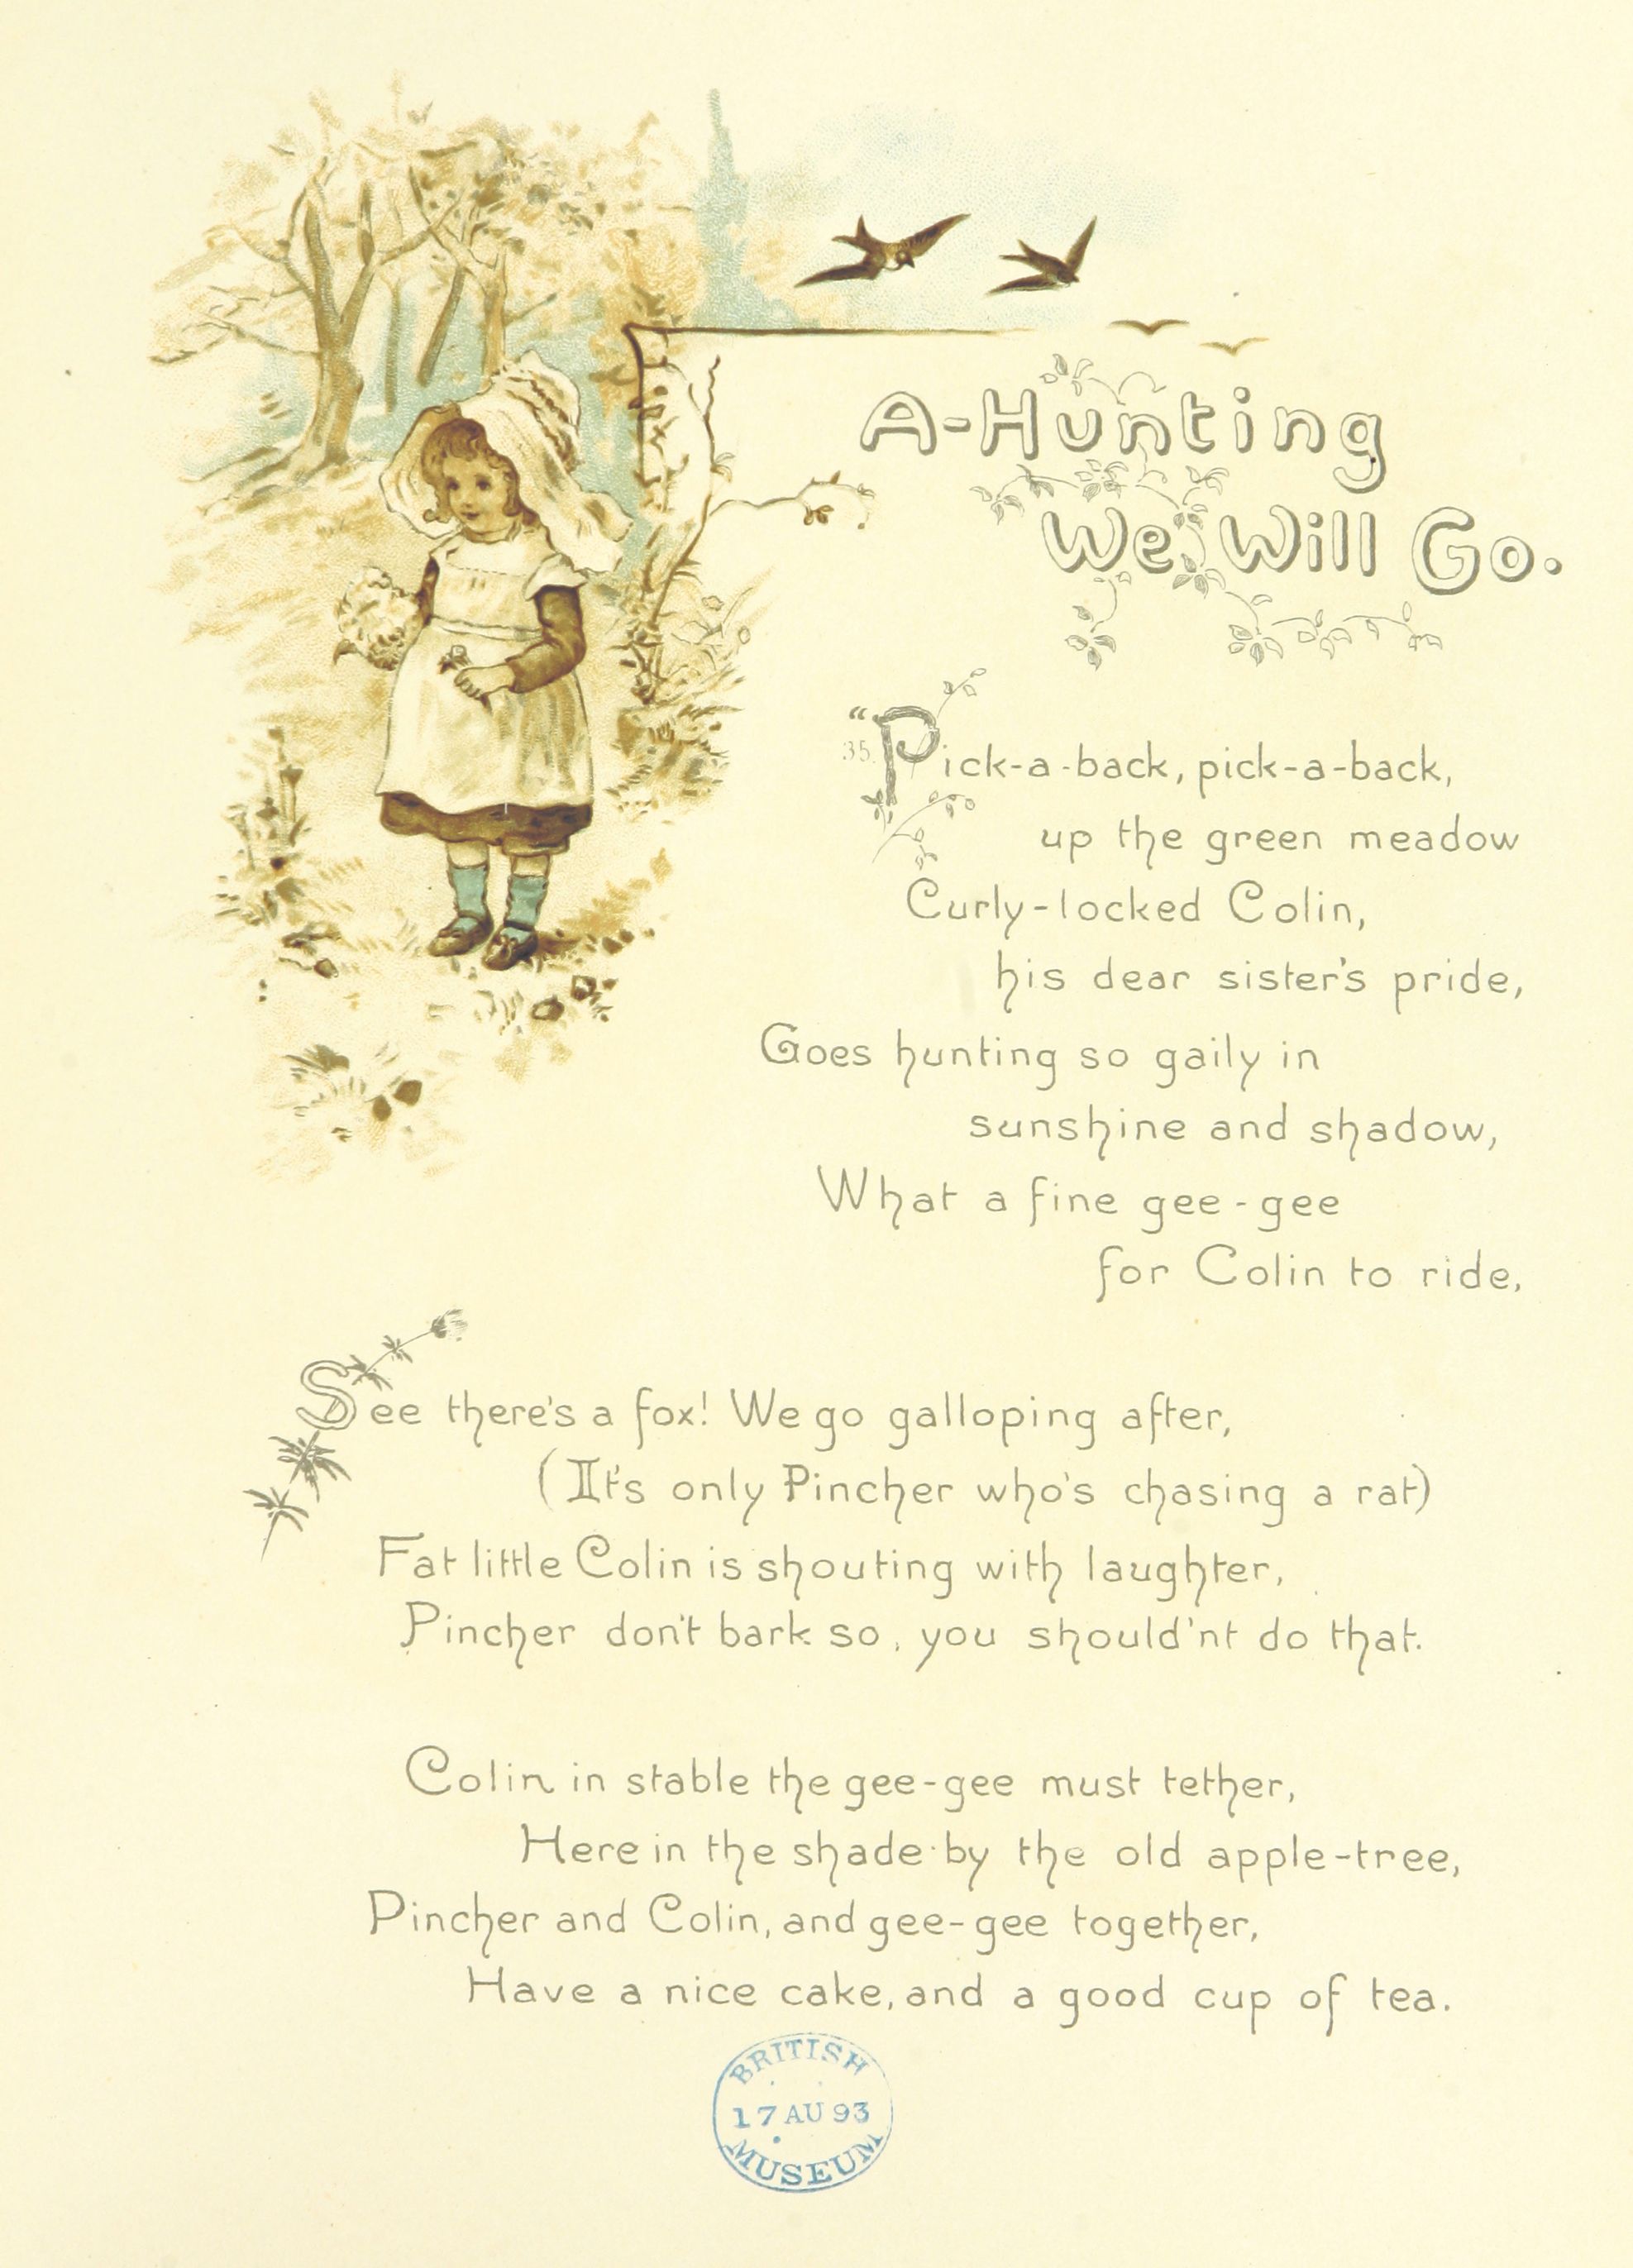 A-Hunting
We Will Go.
35.
"Pick-a-back, pick-a-back,
up the green meadow
Curly-locked Colin,
his dear sister's pride,
Goes hunting so gaily in
sunshine and shadow,
What a fine gee-gee
for Colin to ride.
See there's a fox! We go galloping after,
(It's only Pincher who's chasing a rat)
Fat little Colin is shouting with laughter,
Pincher don't bark so, you should'nt do that.
Colin in stable the gee-gee must tether,
Here in the shade by the old apple-tree,
Pincher and Colin, and gee-gee together,
Have a nice cake, and a good cup of tea.
BRITISH
17 AU 93
MUSEUM